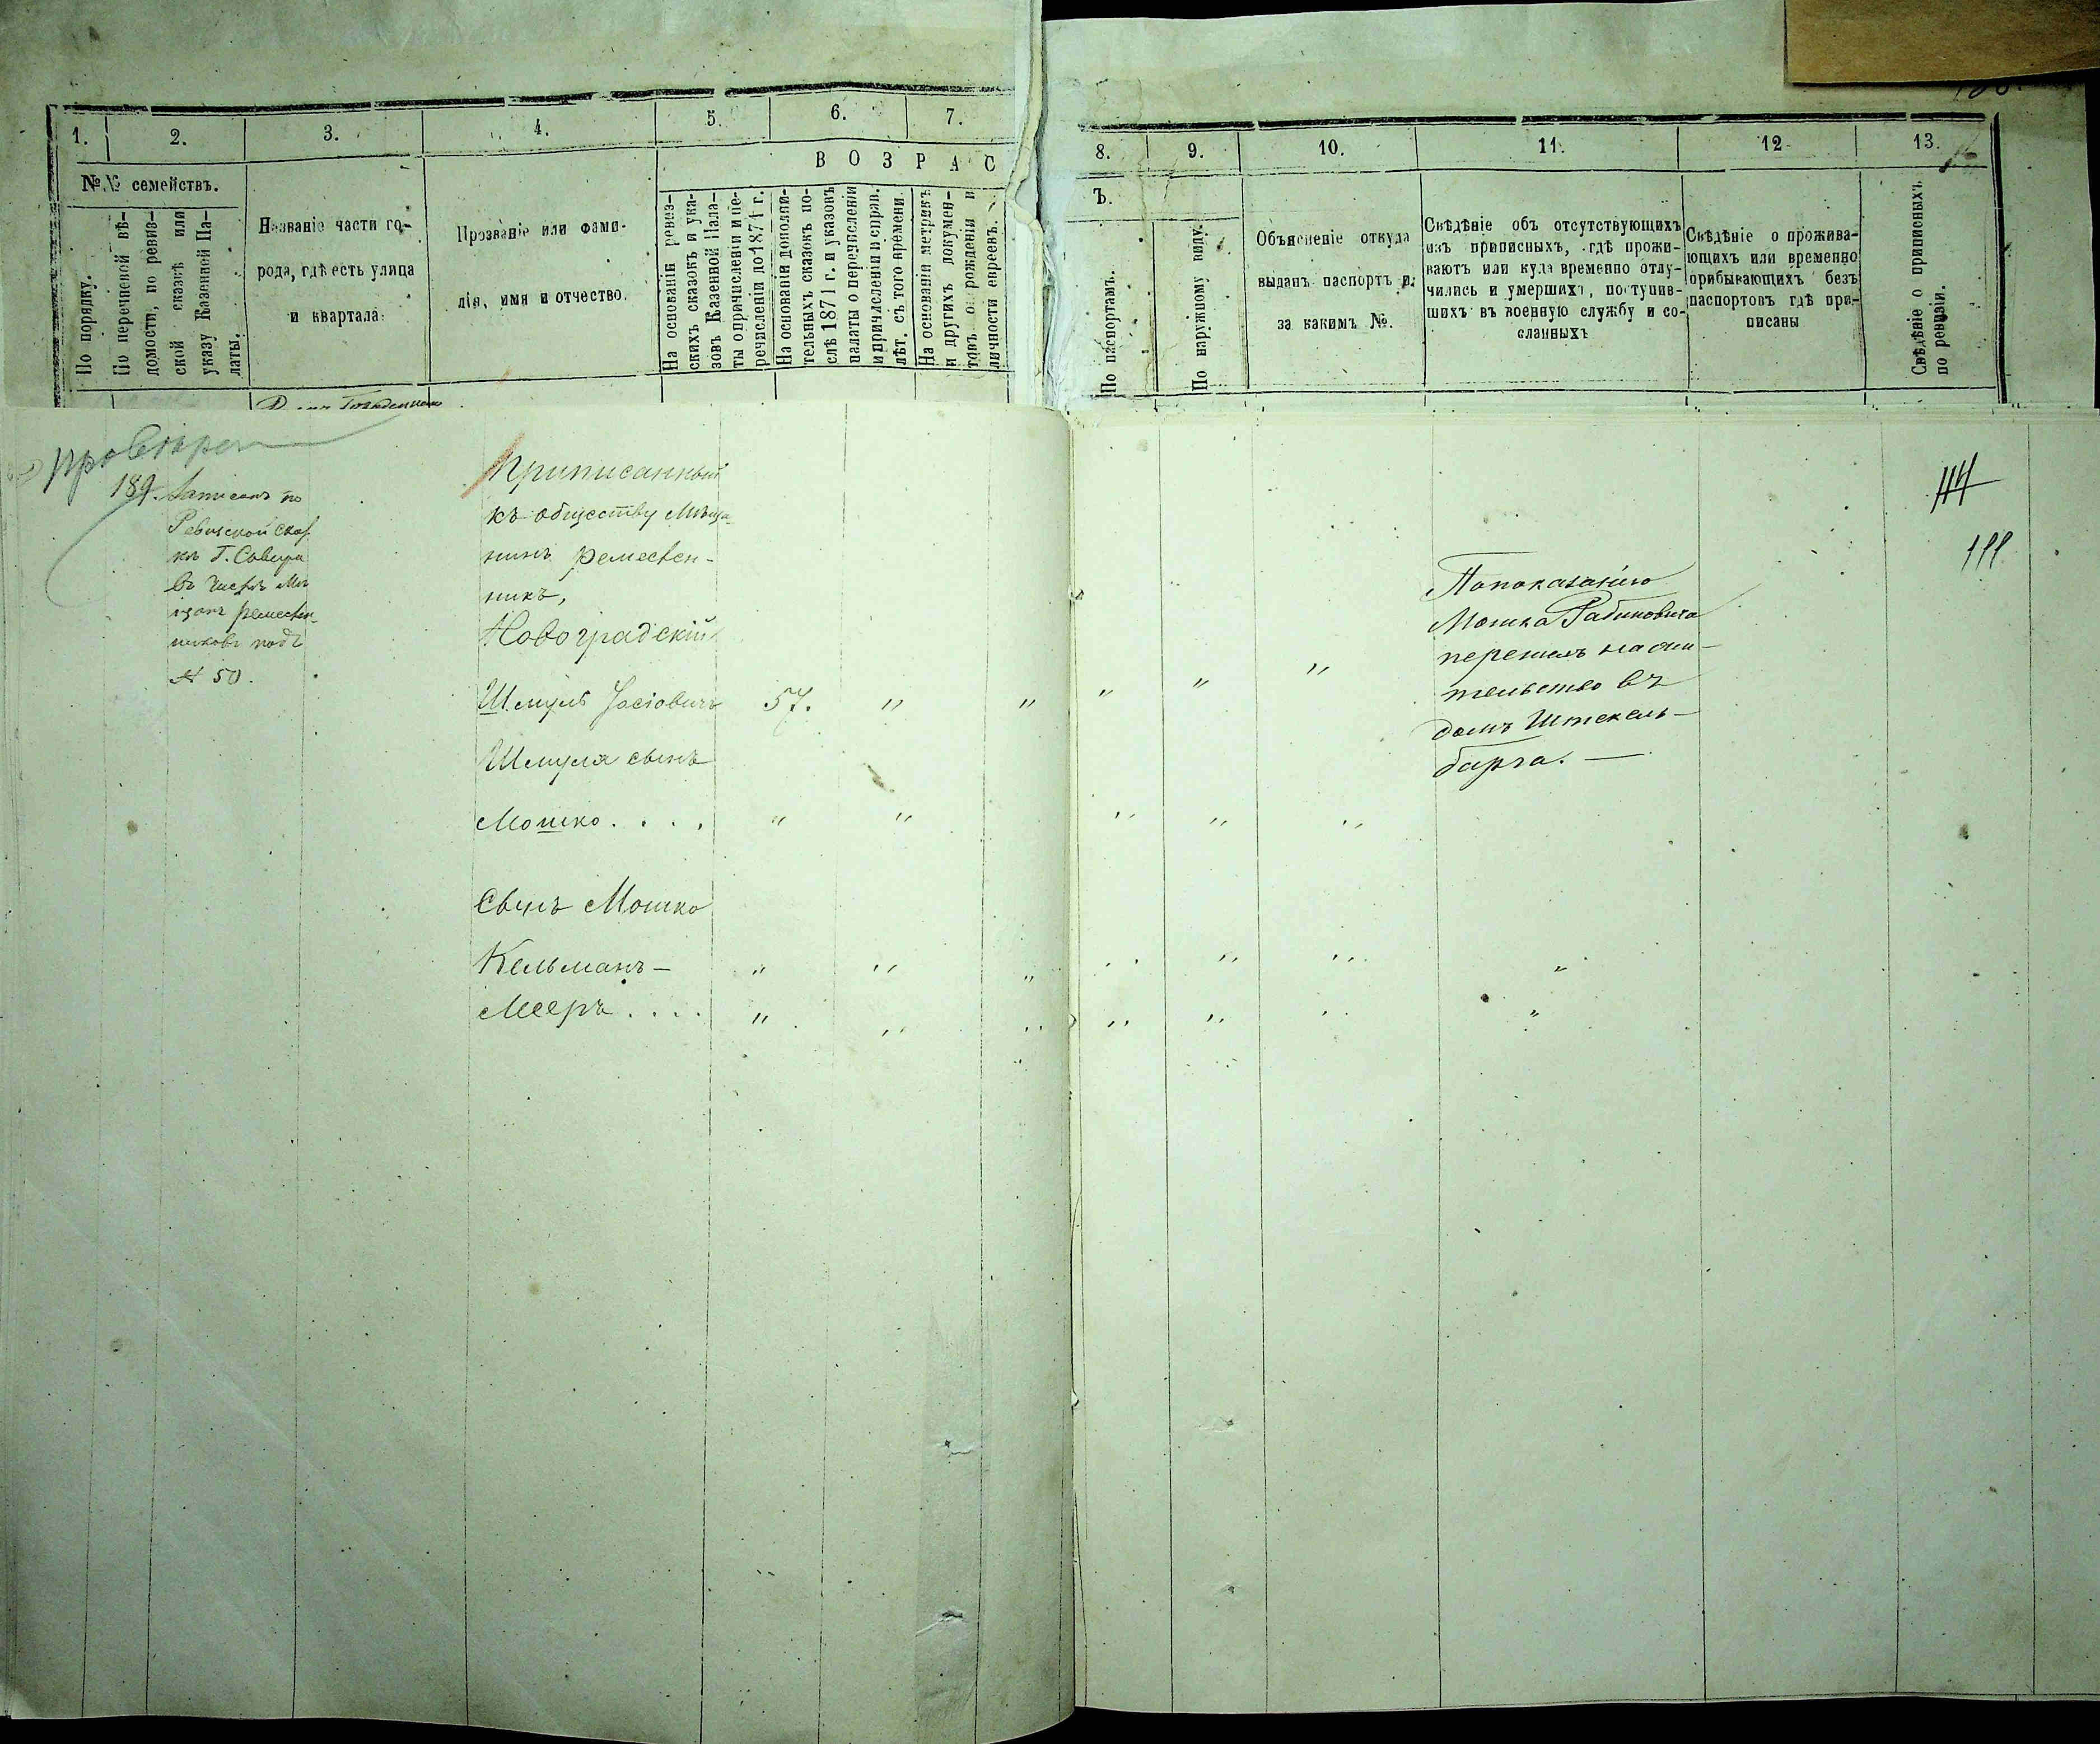 1. 2. 3. 4. 5. 6. 7.
№№ семействъ.
По порядку.
По перечневой вѣ-
домости, по ревиз-
ской сказкѣ или
указу Казенной Па-
латы.
Названіе части го-
рода, гдѣ есть улица
и квартала.
Прозваніе или фами-
лія, имя и отчество.
В О З Р А С
На основаніи ревиз-
скихъ сказокъ и ука-
зовъ Казенной Пала-
ты о причисленіи и пе-
речисленіи до 1871 г.
На основаніи дополни-
тельныхъ сказокъ по-
слѣ 1871 г. и указовъ
палаты о перечисленіи
и причисленіи и справ.
лѣт. съ того времени.
На основаніи метрикъ
и другихъ докумен-
товъ о рожденіи и
личности евреевъ.
8. 9. 10. 11. 12. 13.
Ъ.
По паспортамъ.
По наружному виду.
Объясненіе откуда
выданъ паспортъ и
за какимъ №.
Свѣдѣніе объ отсутствующихъ
изъ приписныхъ, гдѣ прожи-
ваютъ или куда временно отлу-
чились и умершихъ, поступив-
шихъ въ военную службу и со-
сланныхъ
Свѣдѣніе о прожива-
ющихъ или временно
прибывающихъ безъ
паспортовъ гдѣ при-
писаны
Свѣдѣніе о приписныхъ
по ревизіи.
189. Записанъ по
Ревизской Сказ
кѣ Г. Сквира
въ числѣ Мѣ
щанъ ремеслен-
никовъ подъ
№ 50.
Приписанный
къ обществу Мѣща-
нинъ ремеслен-
никъ,
Новоградскій
Шмуль Іосіовичъ 57. " " " " "
Шмуля сынъ
Мошко . . . . " " " " "
Сынъ Мошко
Кельманъ — " " " " " " "
Мееръ . . . . " " " " " " "
По показанію
Мошка Рабиновича
перешелъ на жи-
тельство въ
домъ Штекель-
барга. —
111